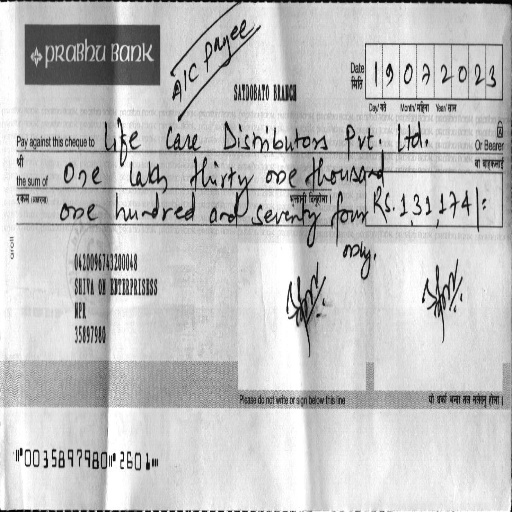 PRABHU BANK
A/C Payee
SATDOBATO BRANCH
Date
मिति
19072023
Day/ गते Month/ महिना Year/ साल
Pay against this cheque to Life Care Distributors Pvt. Ltd. Or Bearer
श्री वा वाहकलाई
the sum of One lakh thirty one thousand
रकम (अक्षरमा)
one hundred and seventy four
only.
Rs. 1,31,174/=
0420096743200048
SHIVA OM ENTERPRISESS
NPR
35897980
Please do not write or sign below this line
0035897980 2601